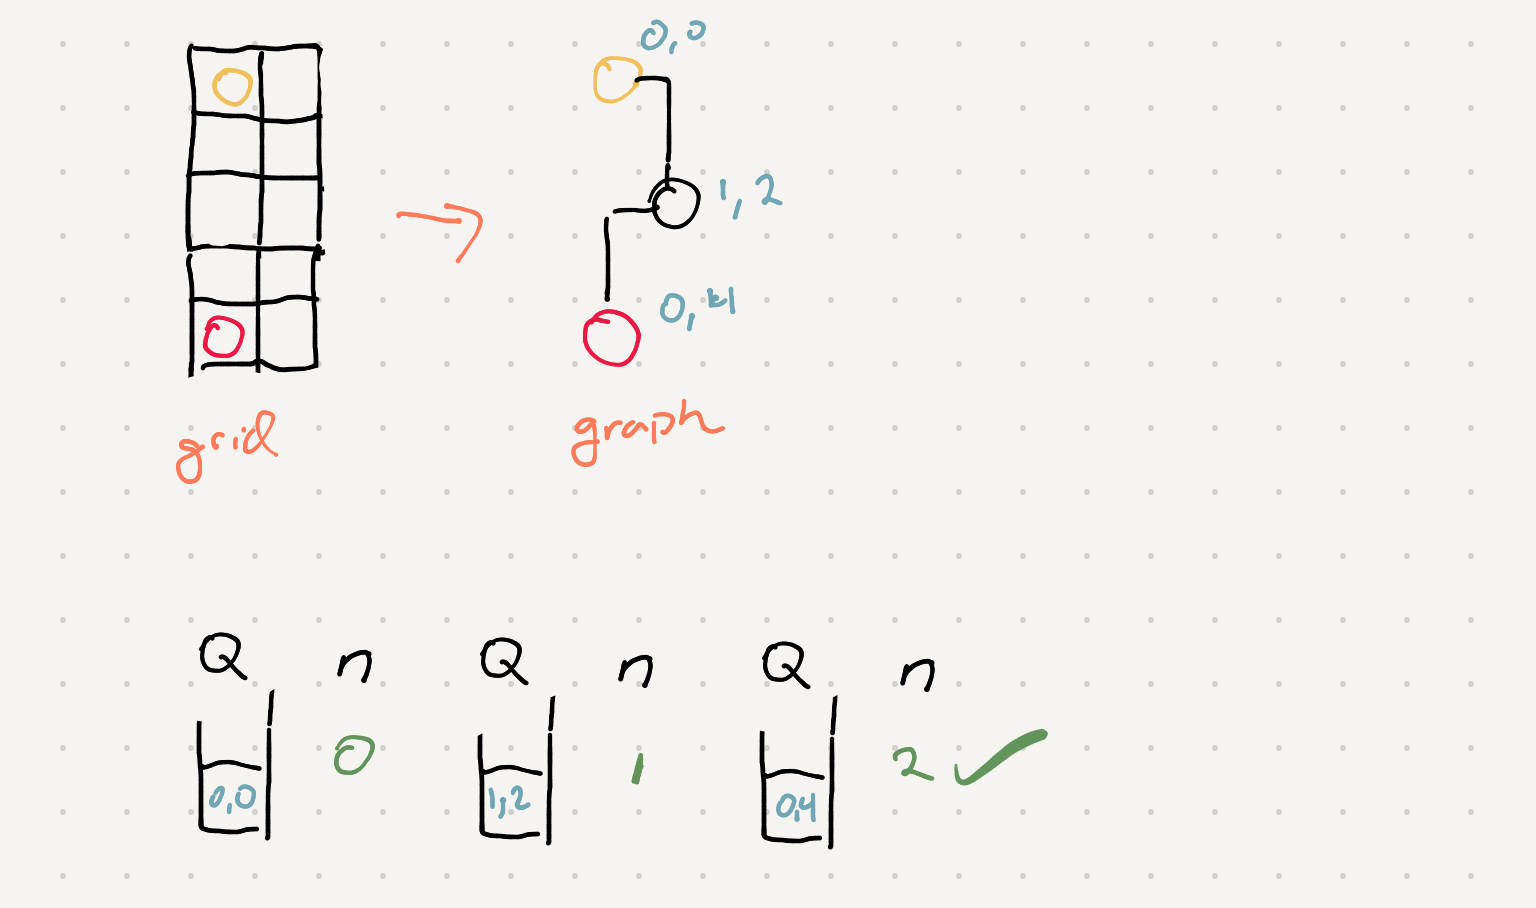 0,0
1,2
0,4
grid
graph
Q n Q n Q n
0 1 2
0,0 1,2 0,4